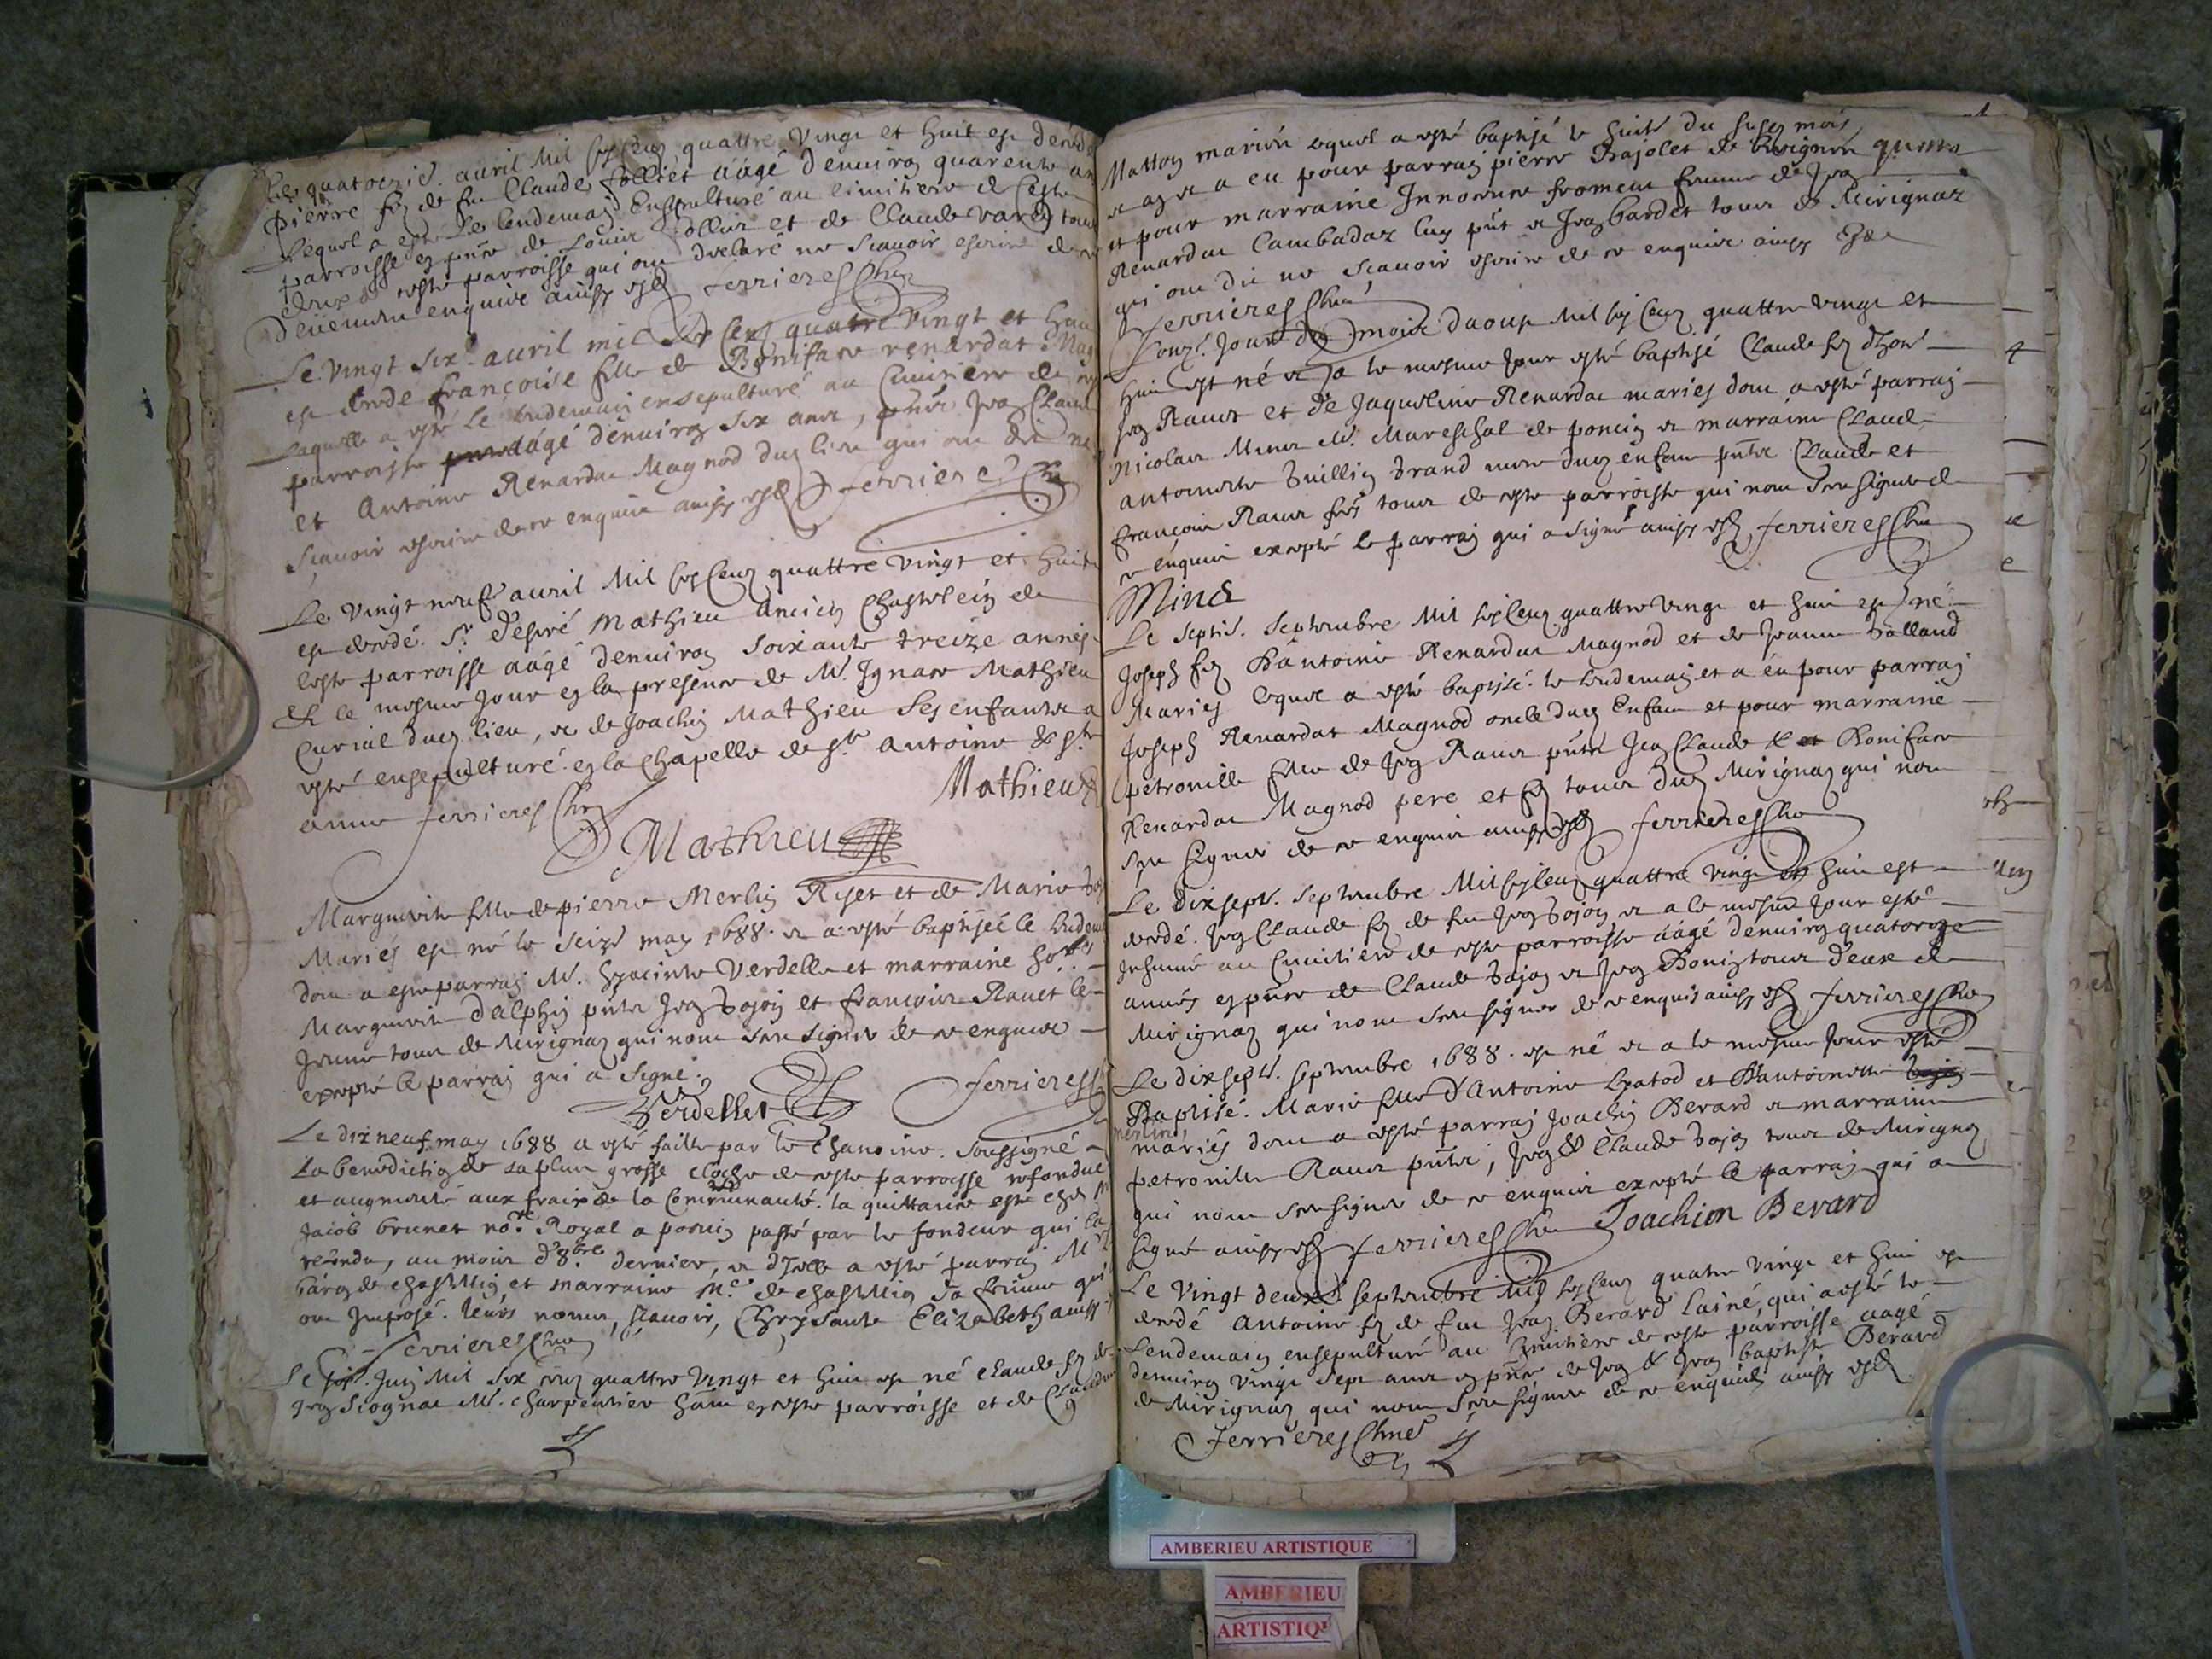 Le quatorzie. auril Mil six Cens quattre Vingt et huit est decedé
pierre fz de fu Claude Colliet aágé denuiron quarente an
Lequel a esté le lendemain Ensepulturé au cimitiere de Ceste
parroisse en pnce de Louis Collier et de Claude Varey tous
deux de ceste parroisse qui ont declaré ne scauoir escrire de ce
deuement enquis ainsy est ferrieres Chne
Le Vingt six auril mil six Cens quatre Vingt et huit
est decedé françoise fille de Boniface renardat Mag
Laquelle a esté Le lendemain ensepulturé au Cimitiere de
parroisse aágé denuiron six ans, pnts Jean Claude
et Antoine Renardat Magnod dud lieu qui ont dit ne
scauoir escrire de ce enquis ainsy est ferrieres Chne
Le Vingt neuf auril Mil six Cens quattre Vingt et huit
est decedé Sr. desiré Mathieu ancien Chastelein de
ceste parroisse aágé denuiron soixante treize années
& le mesme Jour en la presence de M. Ignace Mathieu
Curial dud lieu, & de Joachin Mathieu ses enfants a
esté ensepulturé en la Chapelle de St Antoine & Ste
anne ferrieres Chne Mathieu
Mathieu
Marguerite fille de pierre Merlin Riset et de Marie
Mariés est né le seize may 1688. & a esté baptisée le lendem
dont a esté parrain M. hyacinte Verdellet et marraine
Marguerite dalphin pnts Jean bojon et francois Rauet le
Jeune tous de Mirignaz qui nont sceu signer de ce enquis
excepté le parrain qui a signé.
Verdellet ferrieres
Le dix neuf may 1688 a esté faitte par le Chanoine soussigné
La benediction de la plus grosse cloche de ceste parroisse refondue
et augmenté aux fraix de la Communauté. la quittance est chez M
Jacob brunet nore. Royal a poncin passé par le fondeur qui la
refondu, au mois d'8bre dernier, & dicelle a esté parrain Mr
et marraine Me. de sa femme qui
ont Imposé leurs noms, scauoir, Chrysante Elizabeth ainsy
ferrieres Chne
Le Juin Mil Six cens quattre Vingt et huit est né Claude fz de
Jean Siognat M. Charpentier en ceste parroisse et de Claudine
Matton mariés lequel a esté baptisé le huité du susd mois
& an & a eu pour parrain pierre Trajolet de
et pour marraine Innocence froment femme de Jean
Renardat Cambadaz pnt & Jean bardet tous de Mirignaz
qui ont dit ne scauoir escrire de ce enquis ainsy est
ferrieres Chne
L'onze. Jour du mois daoust Mil six Cens quattre Vingt et
huit est né & a le mesme Jour esté baptisé Claude fz dhon
Jean Rauet et de Jaqueline Renardat mariés dont a esté parrain
Nicolas Minet M. Mareschal de poncin & marraine Claud
antoinette tuillier grand mere dud enfant pnts Claude et
françois Rauet frés tous de ceste parroisse qui nont sceu signer de
ce enquis excepté le parrain qui a signé ainsy est ferrieres Chne
Minet
Le Septie. Septembre Mil six Cens quattre Vingt et huit est né
Joseph fz d'antoine Renardat Magnod et de Jeanne tolland
Mariés lequel a esté baptisé le lendemain et a eu pour parrain
Joseph Renardat Magnod oncle dud Enfant et pour marraine
petronille fille de Jean Rauet pnts Jean Claude & Boniface
Renardat Magnod pere et fz tous dud Mirignaz qui nont
sceu signer de ce enquis ainsy est ferrieres Chne
Le dix sept. Septembre Mil six Cens quattre Vingt et huit est
decedé Jean Claude fz de fu Jean bojon & a le mesme Jour esté
Inhumé au Cimitiere de ceste parroisse aágé denuiron quatorze
années en pnce de Claude bojon & Jean Bonin tous deux de
Mirignaz qui nont sceu signer de ce enquis ainsy est ferrieres Chne
Le dix sept. septembre 1688. est né & a le mesme Jour esté
Baptisé. Marie fille d'Antoine et d'antoinette
merlin
mariés dont a esté parrain Joachin Berard & marraine
petronille Rauet pnts, Jean & Claude bojon tous de Mirignaz
qui nont sceu signer de ce enquis excepté le parrain qui a
signé ainsy est ferrieres Chne Joachim Berard
Le Vingt deux Septembre Mil six Cens quatre Vingt et huit est
decedé Antoine fz de fu Jean Berard lainé, qui a esté le
Lendemain ensepulturé au Cimitiere de ceste parroisse aagé
denuiron vingt sept ans en pnce de Jean & Jean baptiste Berard
de Mirignaz qui nont sceu signer de ce enquis ainsy est
ferrieres Chne
AMBERIEU ARTISTIQUE
AMBERIEU
ARTISTIQU